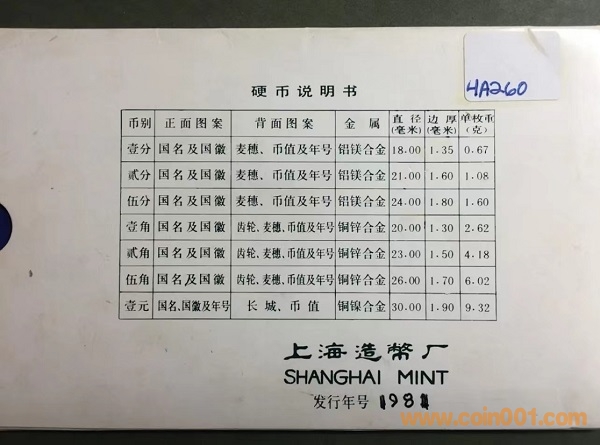 4A260
硬币说明书
币别 正面图案 背面图案 金属 直径(毫米) 边厚(毫米) 单枚重(克)
壹分 国名及国徽 麦穗、币值及年号 铝镁合金 18.00 1.35 0.67
贰分 国名及国徽 麦穗、币值及年号 铝镁合金 21.00 1.60 1.08
伍分 国名及国徽 麦穗、币值及年号 铝镁合金 24.00 1.80 1.60
壹角 国名及国徽 齿轮、麦穗、币值及年号 铜锌合金 20.00 1.30 2.62
贰角 国名及国徽 齿轮、麦穗、币值及年号 铜锌合金 23.00 1.50 4.18
伍角 国名及国徽 齿轮、麦穗、币值及年号 铜锌合金 26.00 1.70 6.02
壹元 国名、国徽及年号 长城、币值 铜镍合金 30.00 1.90 9.32
上海造幣厂
SHANGHAI MINT
发行年号 1981
www.coin001.com